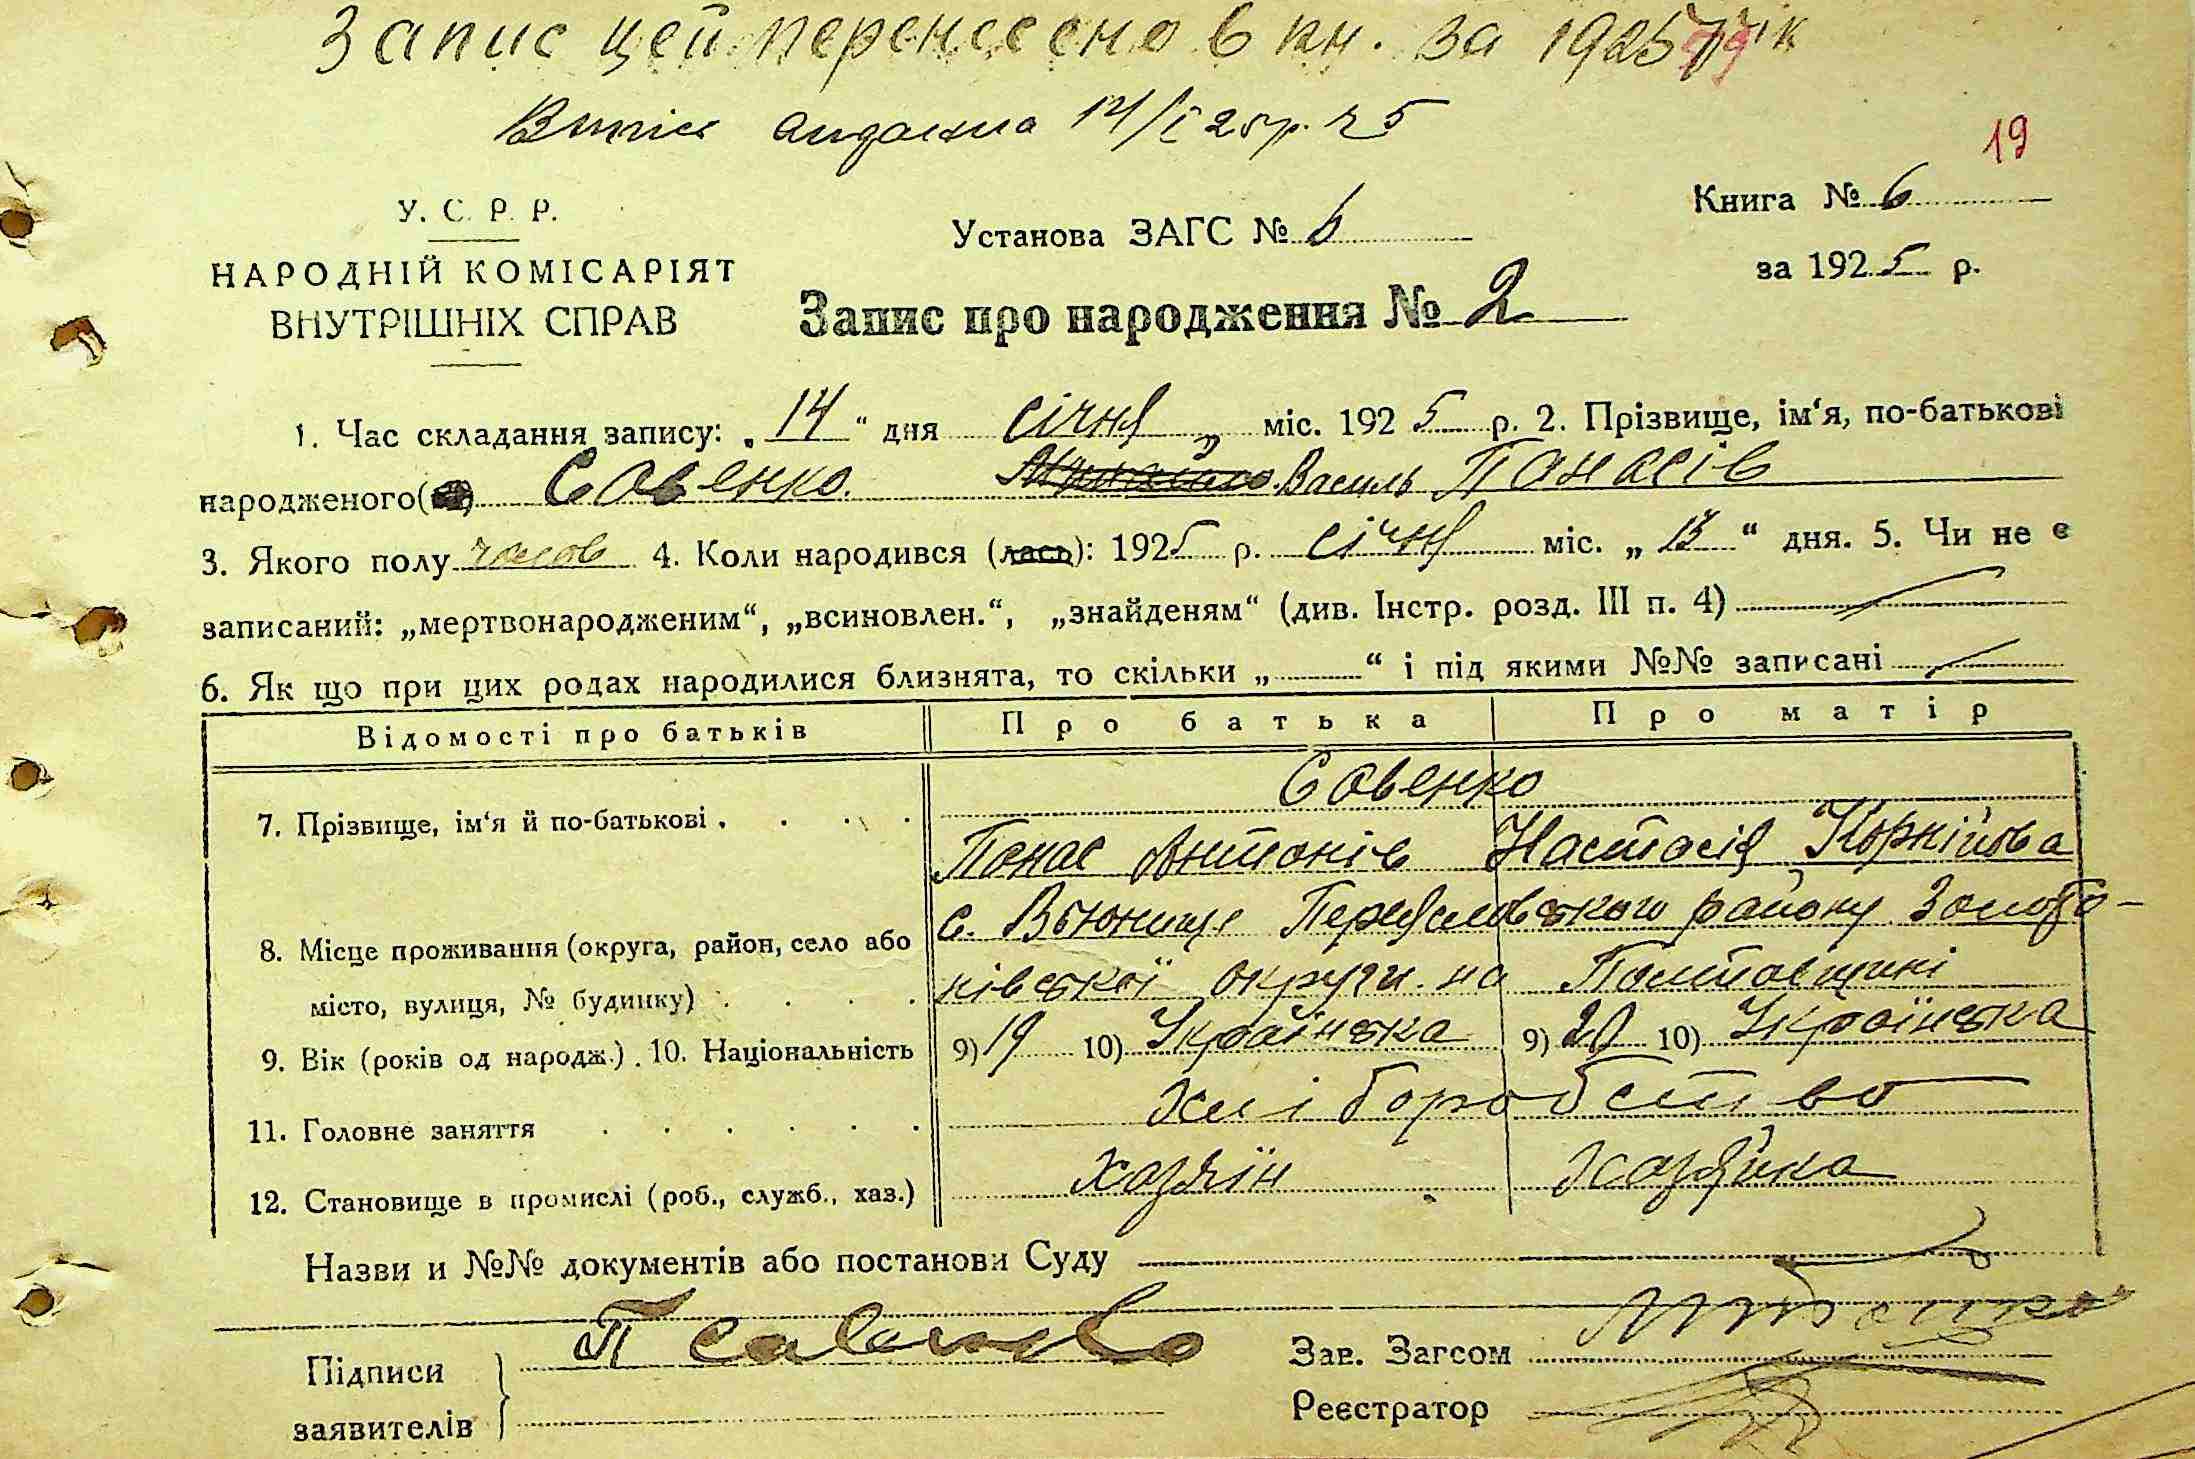 Запис цей перенесено в кн. за 1925 рік
Випис видана 14/I 25 р. ч 5
19
У. С. Р. Р.
НАРОДНІЙ КОМІСАРІЯТ
ВНУТРІШНІХ СПРАВ
Установа ЗАГС № 6
Запис про народження № 2
Книга № 6
за 1925 р.
1. Час складання запису: „14“ дня січня міс. 1925 р. 2. Прізвище, ім‘я, по-батькові
народженого( ) Савенко Василь Панасів
3. Якого полу чолов 4. Коли народився (лась): 1925 р. січня міс. „13“ дня. 5. Чи не є
записаний: „мертвонародженим“, „всиновлен.“, „знайденям“ (див. Інстр. розд. III п. 4)
6. Як що при цих родах народилися близнята, то скільки „ “ і під якими №№ записані
Відомості про батьків Про батька Про матір
Савенко
7. Прізвище, ім‘я й по-батькові
Панас Антонів Настасія Корніїова
8. Місце проживання (округа, район, село або
місто, вулиця, № будинку)
с. Вьюнище Переяславського району Золото-
нівської округи на Полтавщині
9. Вік (років од народж.) . 10. Національність 9) 19 10) Українська 9) 20 10) Українська
11. Головне заняття хліборобство
12. Становище в промислі (роб., служб., хаз.) хазяїн хазяйка
Назви и №№ документів або постанови Суду
Підписи
заявителів
П Савенко
Зав. Загсом
Реєстратор